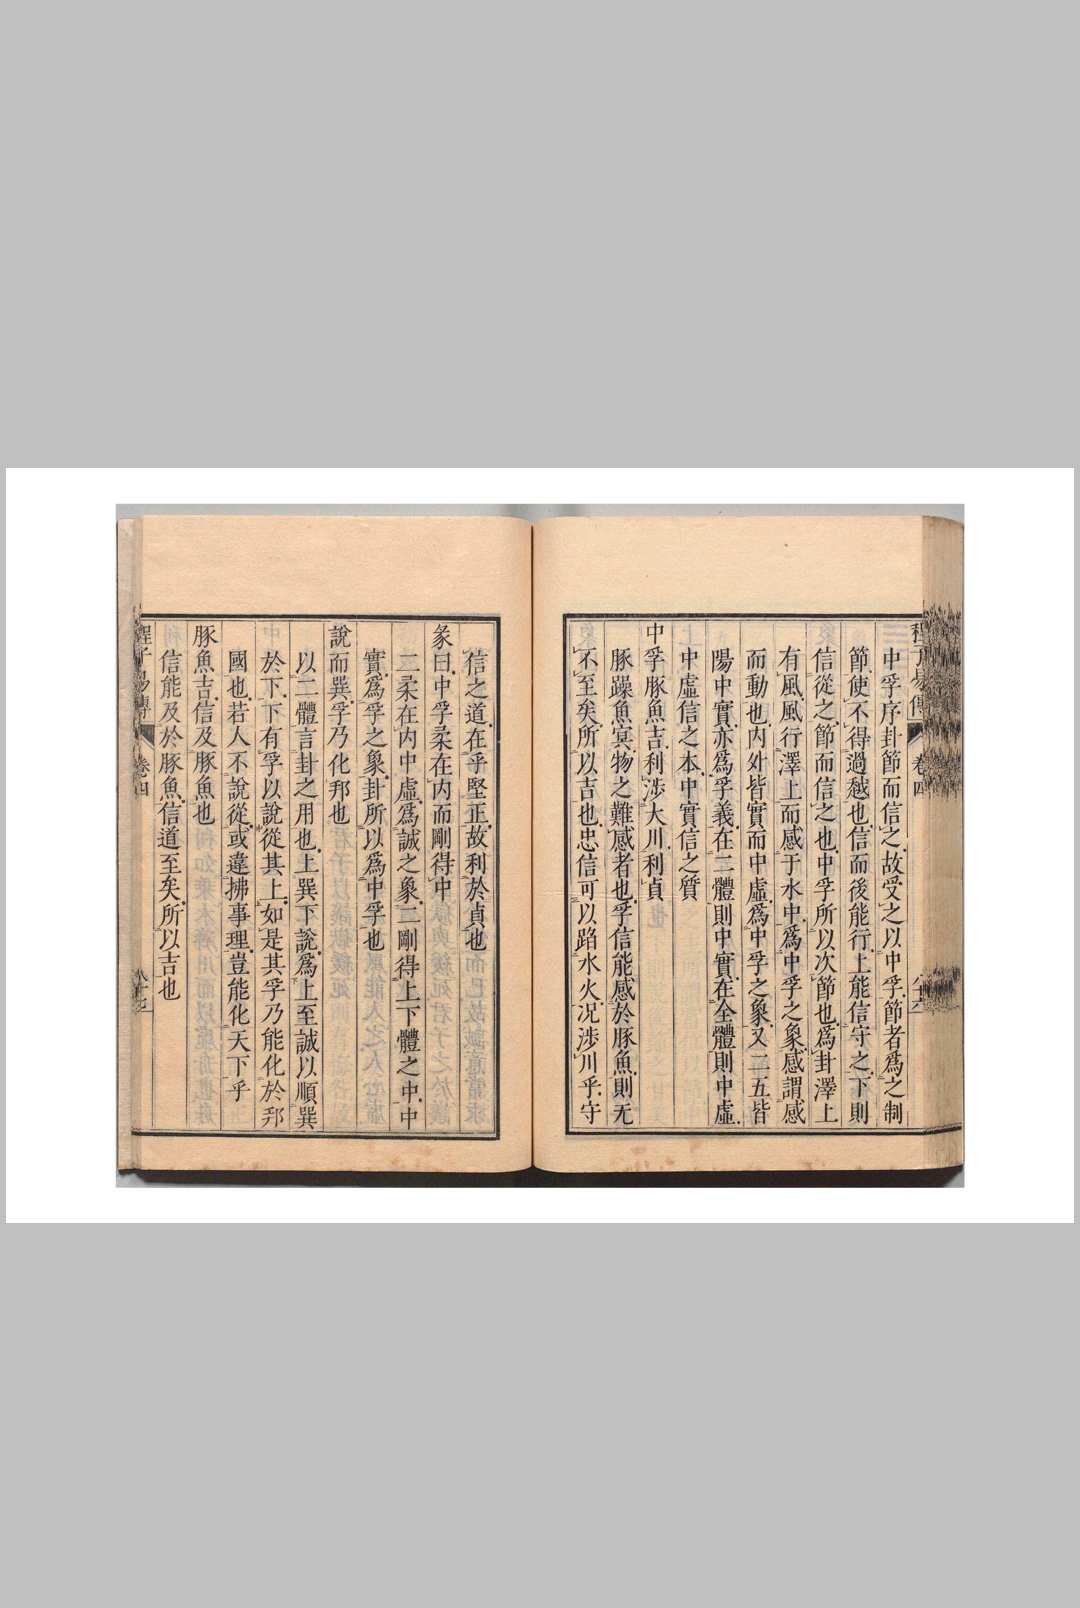 程子易傳 卷四 八十六
中孚序卦節而信之故受之以中孚節者爲之制
節使不得過越也信而後能行上能信守之下則
信從之節而信之也中孚所以次節也爲卦澤上
有風風行澤上而感于水中爲中孚之象感謂感
而動也内外皆實而中虛爲中孚之象又二五皆
陽中實亦爲孚義在二體則中實在全體則中虛
中虛信之本中實信之質
中孚豚魚吉利涉大川利貞
豚躁魚冥物之難感者也孚信能感於豚魚則无
不至矣所以吉也忠信可以蹈水火况涉川乎守
信之道在乎堅正故利於貞也
彖曰中孚柔在内而剛得中
二柔在内中虛爲誠之象二剛得上下體之中中
實爲孚之象卦所以爲中孚也
說而巽孚乃化邦也
以二體言卦之用也上巽下說爲上至誠以順巽
於下下有孚以說從其上如是其孚乃能化於邦
國也若人不說從或違拂事理豈能化天下乎
豚魚吉信及豚魚也
信能及於豚魚信道至矣所以吉也
程子易傳 卷四 八十七